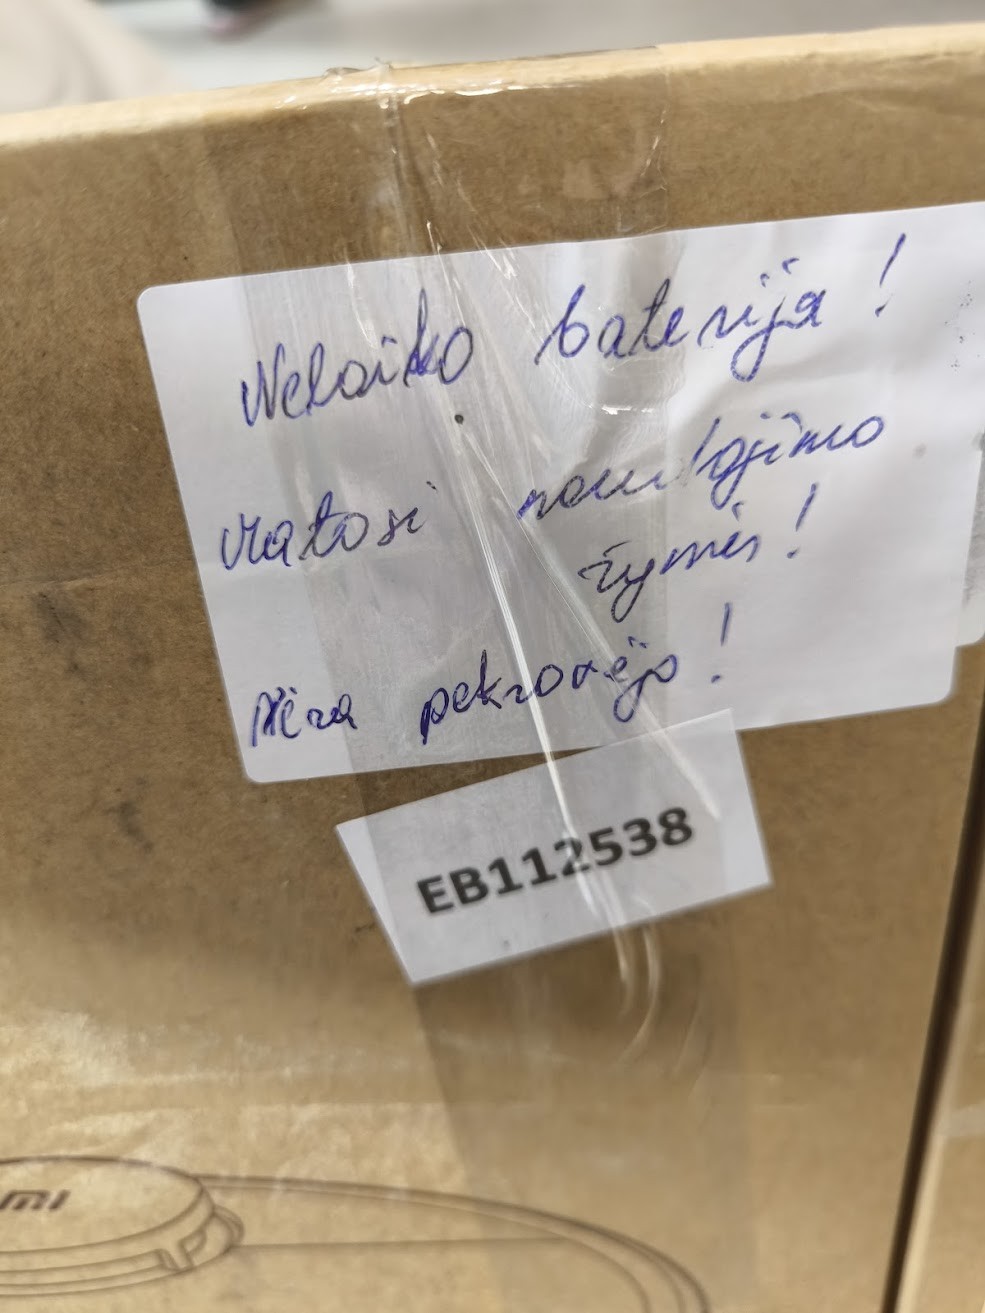 Nelaiko baterija!
Matosi naudojimo
žymės!
Nėra pakrovėjo!
EB112538
MI